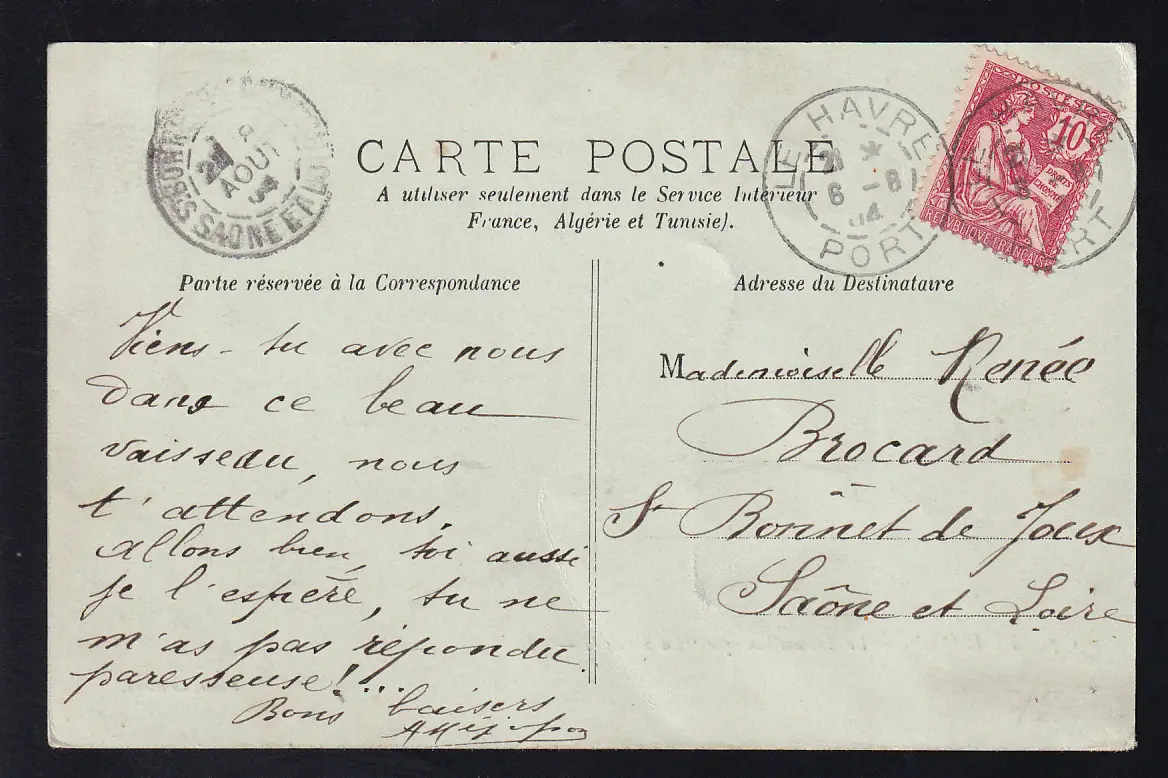 CARTE POSTALE
A utiliser seulement dans le Service Intérieur
France, Algérie et Tunisie).
LE HAVRE
6 - 8
04
PORT
POSTES
10
DROITS DE L'HOMME
REPUBLIQUE FRANÇAISE
AOUT
SAONE ET L
Partie réservée à la Correspondance
Adresse du Destinataire
Viens-tu avec nous
dans ce beau
vaisseau, nous
t'attendons.
allons bien, toi aussi
je l'espère, tu ne
m'as pas répondu
paresseuse!...
Bons baisers
Mademoiselle Renée
Brocard
St Bonnet de Joux
Saône et Loire